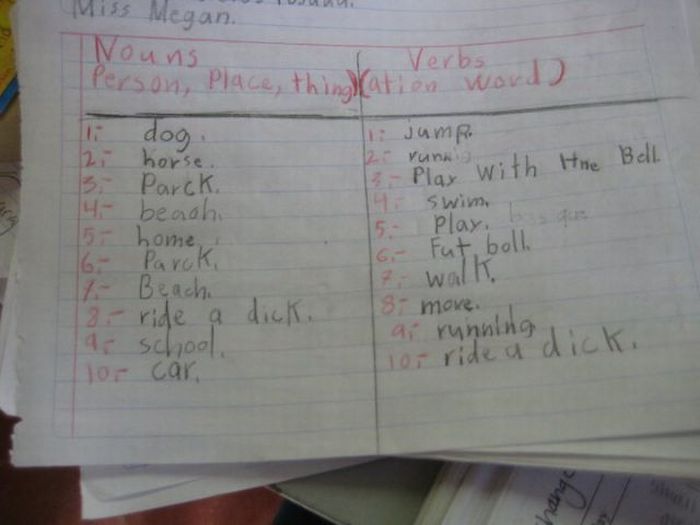 Miss Megan.
Nouns
Person, Place, thing)
1:- dog.
2:- horse.
3:- Parck.
4:- beach.
5:- home.
6:- Parck.
7:- Beach.
8:- ride a dick.
9:- school.
10:- car.
Verbs
(ation word)
1:- jump.
2:- runnig
3:- Play with Hne Boll
4:- swim.
5:- Play.
6:- Fut boll.
7:- walk.
8:- move.
9:- running
10:- ride a dick.